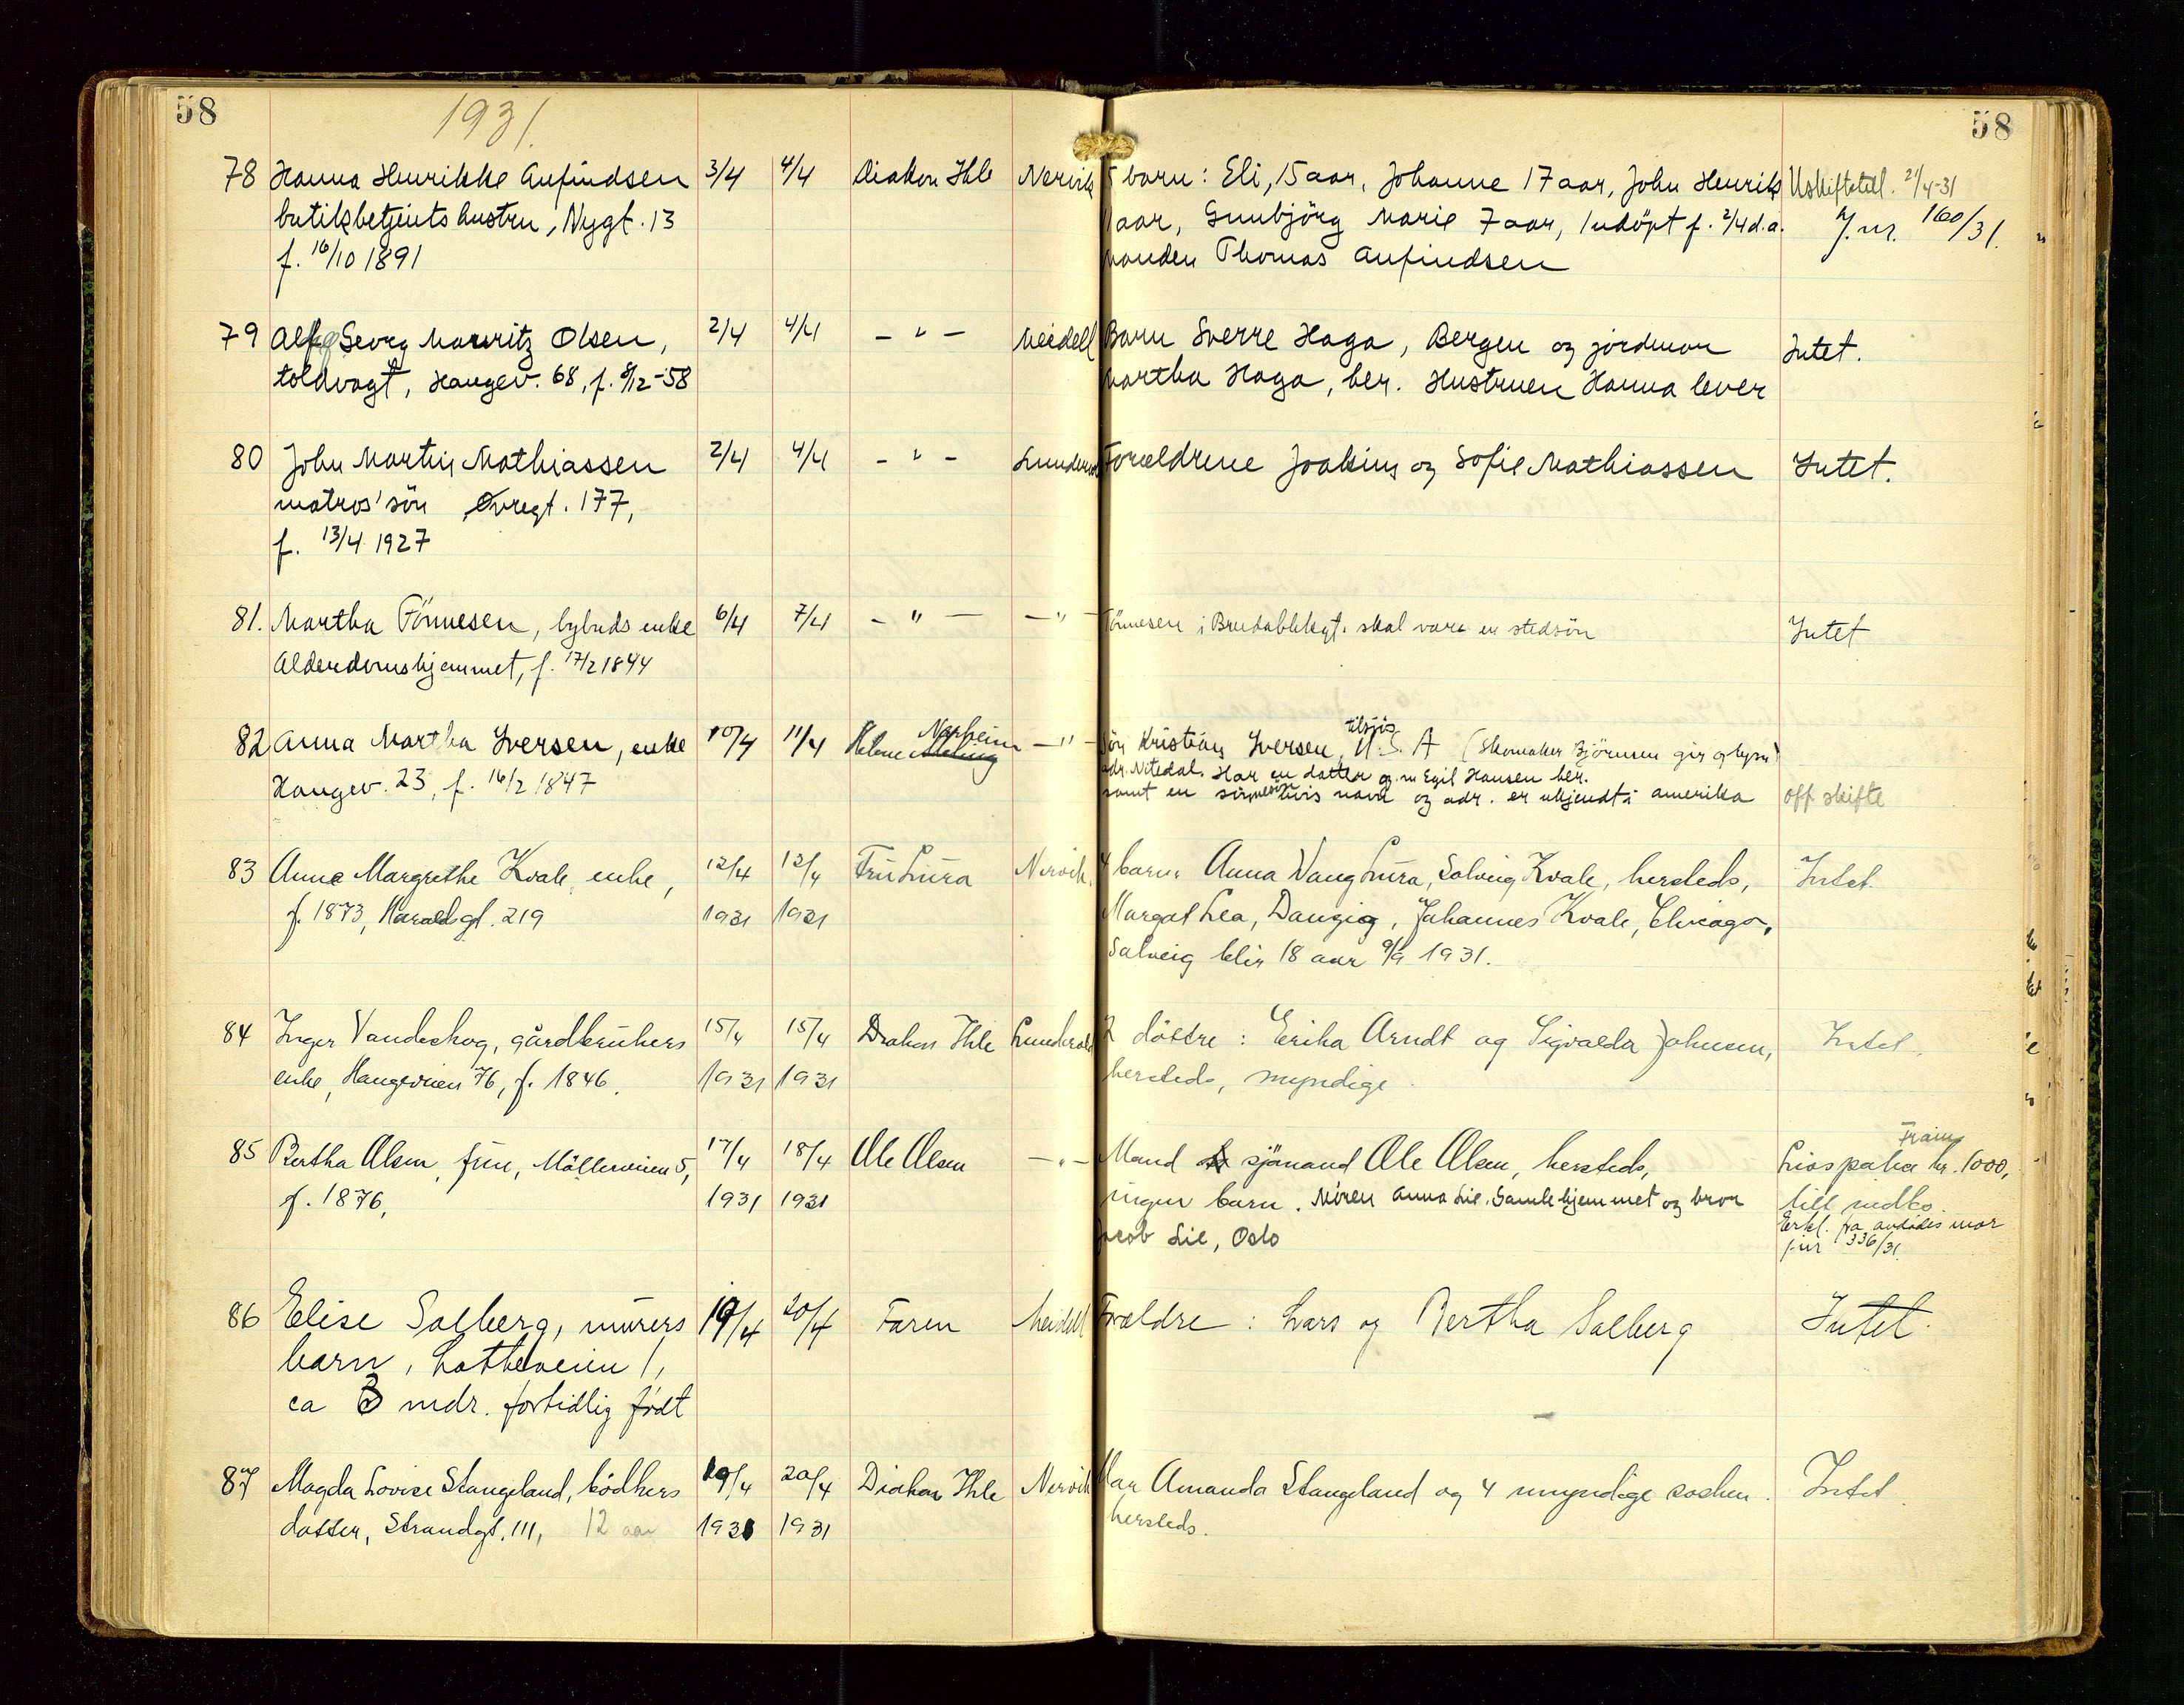 58
1931.
58
78 Hanna Henrikke Anfindsen 3/4 4/4 Diakon Ihle Nervik 5 barn: Eli, 15 aar, Johanne 17 aar, John Henrik Uskiftetill. 21/4-31
butikbetjents hustru, Nygt. 13 11 aar, Gunbjörg Marie 7 aar, 1 udöpt f. 2/4 d.a. J.nr. 160/31.
f. 16/10 1891 manden Thomas Anfindsen
79 Georg Mauritz Olsen, 2/4 4/4 - " - Meidell Barn Sverre Haga, Bergen og jordmor Intet.
toldvagt, Haugev. 68, f. 8/12-58 Martha Haga, her. Hustruen Hanna lever
80 John Martin Mathiassen 2/4 4/4 - " - Forældrene Joakim og Sofie Mathiassen Intet.
matros' sön Øvregt. 177,
f. 13/4 1927
81. Martha Tönnesen, bybuds enke 6/4 7/4 - " - - " - Tönnesen i Bredablikgt. skal være en stedsön Intet
Alderdomshjemmet, f. 17/2 1844
tilsjös
82 Anna Martha Iversen, enke 10/4 11/4 Helene Narheim - " - Sön Kristian Iversen, U.S.A (Skomaker Björnsen gir oplysn)
adr. Nitedal. Har en datter g.m Egil Hansen her.
Haugev. 23, f. 16/2 1847 samt en hvis navn og adr. er ukjendt i amerika off skifte
83 Anna Margrethe Kvale, enke, 12/4 12/4 Fru Lura Nervik. 4 barn: Anna Vang Lura, Solveig Kvale, hersteds, Intet.
f. 1873, Haraldsgt. 219 1931 1931 Margot Lea, Danzig, Johannes Kvale, Chicago,
Solveig blir 18 aar 9/9 1931.
84 Inger Vandeskog, gårdbrukers 15/4 15/4 Diakon Ihle Lunderød 2 döttre: Erika Arndt og Sigvalda Johnsen, Intet.
enke, Haugeveien 76, f. 1846. 1931 1931 hersteds, myndige.
85 Bertha Olsen, frue, Mölleveien 5, 17/4 18/4 Ole Olsen - " - Mand sjömand Ole Olsen, hersteds, Livspolice Fram kr. 1000,
f. 1876, 1931 1931 ingen barn. Moren Anna Lie, Gamlehjemmet og bror till.
Jacob Lie, Oslo Erkl. fra avdödes mor
jnr 336/31.
86 Elise Solberg, murers 19/4 20/4 Faren Meidell Forældre: Lars og Bertha Solberg Intet.
barn, 1,
ca 3 mdr. fortidlig född
87 Magda Lovise Stangeland, bödkers 19/4 20/4 Diakon Ihle Nervik Mor Amanda Stangeland og 4 umyndige søsken. Intet.
datter, Strandgt. 111, 12 aar 1931 1931 hersteds.